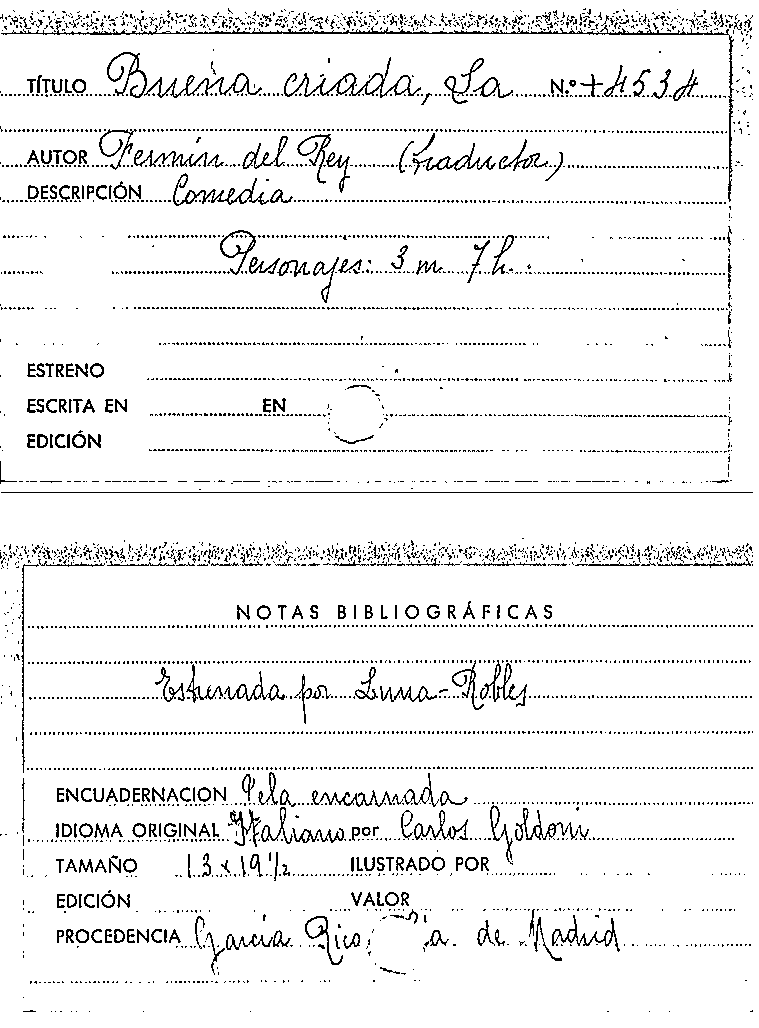 TÍTULO Buena criada, La N.º +4534
AUTOR Fermín del Rey (traductor)
DESCRIPCIÓN Comedia
Personajes: 3 m 7 h.
ESTRENO
ESCRITA EN EN
EDICIÓN
NOTAS BIBLIOGRÁFICAS
Estrenada por Luna-Robles
ENCUADERNACION Tela encarnada
IDIOMA ORIGINAL Italiano por Carlos Goldoni
TAMAÑO 13 x 19 1/2 ILUSTRADO POR
EDICIÓN VALOR
PROCEDENCIA García Rico, a. de Madrid